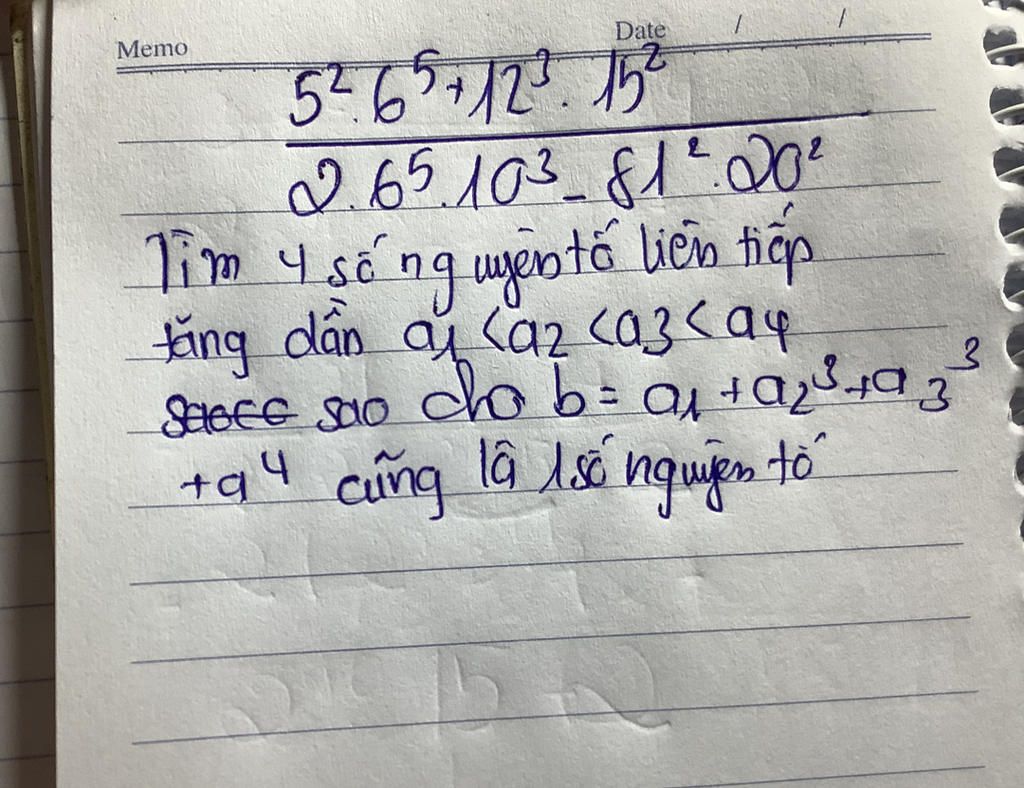 Memo
Date / /
5². 6⁵ + 12³. 15²
2. 6⁵. 10³ - 81². 20²
Tìm 4 số nguyên tố liên tiếp
tăng dần a1 < a2 < a3 < a4
sao cho b = a1 + a2³ + a3³
+ a⁴ cũng là 1 số nguyên tố